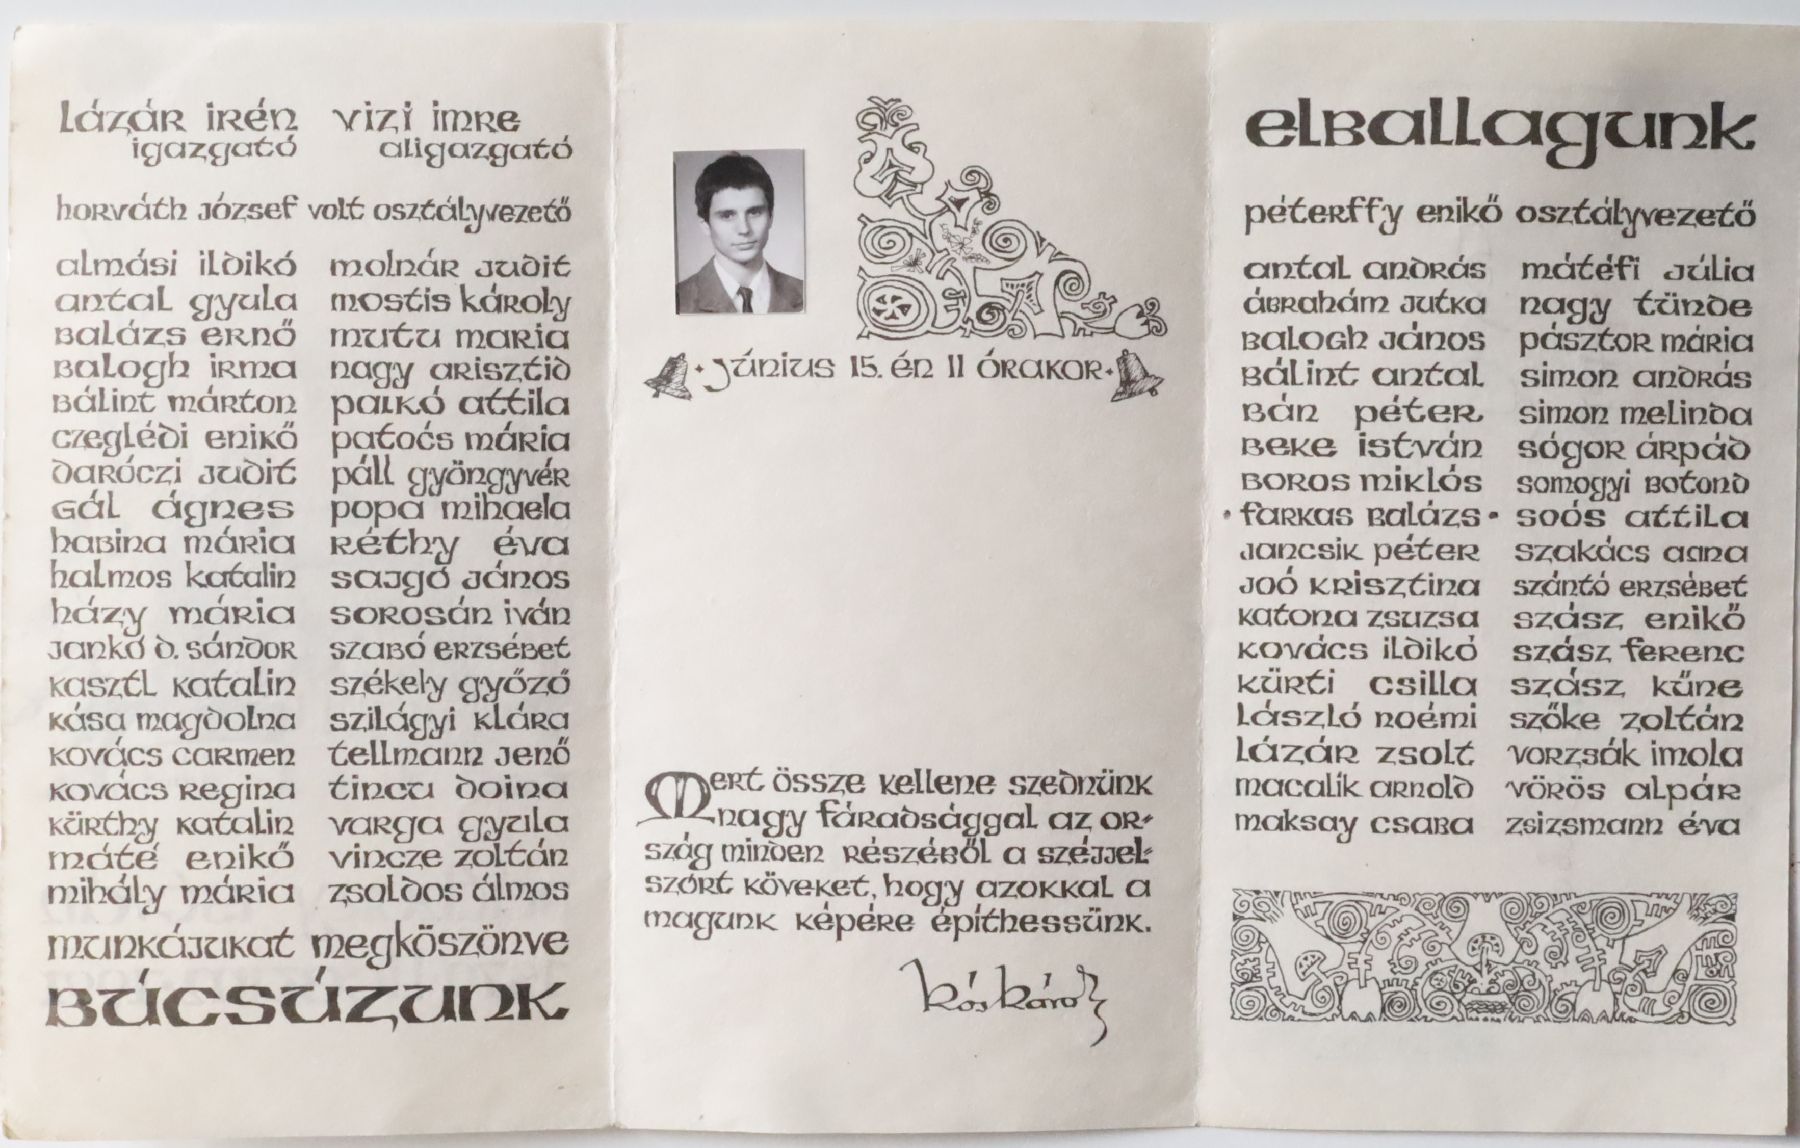 Lázár Irén Vizi Imre
igazgató aligazgató
Horváth József volt osztályvezető
Almási Ildikó Molnár Judit
Antal Gyula Mostis Károly
Balázs Ernő Mutu Maria
Balogh Irma Nagy Arisztid
Bálint Márton Palkó Attila
Czeglédi Enikő Patocs Mária
Daróczi Judit Páll Gyöngyvér
Gál Ágnes Popa Mihaela
Habina Mária Réthy Éva
Halmos Katalin Sajgó János
Házy Mária Sorosán Iván
Jankó D. Sándor Szabó Erzsébet
Kasztl Katalin Székely Győző
Kása Magdolna Szilágyi Klára
Kovács Carmen Tellmann Jenő
Kovács Regina Tincu Doina
Kürthy Katalin Varga Gyula
Máté Enikő Vincze Zoltán
Mihály Mária Zsoldos Álmos
munkájukat megköszönve
BÚCSÚZUNK
Június 15.én 11 órakor
Mert össze kellene szednünk
nagy fáradsággal az or-
szág minden részéből a széjjel-
szórt köveket, hogy azokkal a
magunk képére építhessünk.
Kós Károly
ELBALLAGUNK
Péterffy Enikő osztályvezető
Antal András Mátéfi Júlia
Ábrahám Jutka Nagy Tünde
Balogh János Pásztor Mária
Bálint Antal Simon András
Bán Péter Simon Melinda
Beke István Sógor Árpád
Boros Miklós Somogyi Botond
• Farkas Balázs • Soós Attila
Jancsik Péter Szakács Anna
Joó Krisztina Szántó Erzsébet
Katona Zsuzsa Szász Enikő
Kovács Ildikó Szász Ferenc
Kürti Csilla Szász Küne
László Noémi Szőke Zoltán
Lázár Zsolt Vorzsák Imola
Macalik Arnold Vörös Alpár
Maksay Csaba Zsizsmann Éva